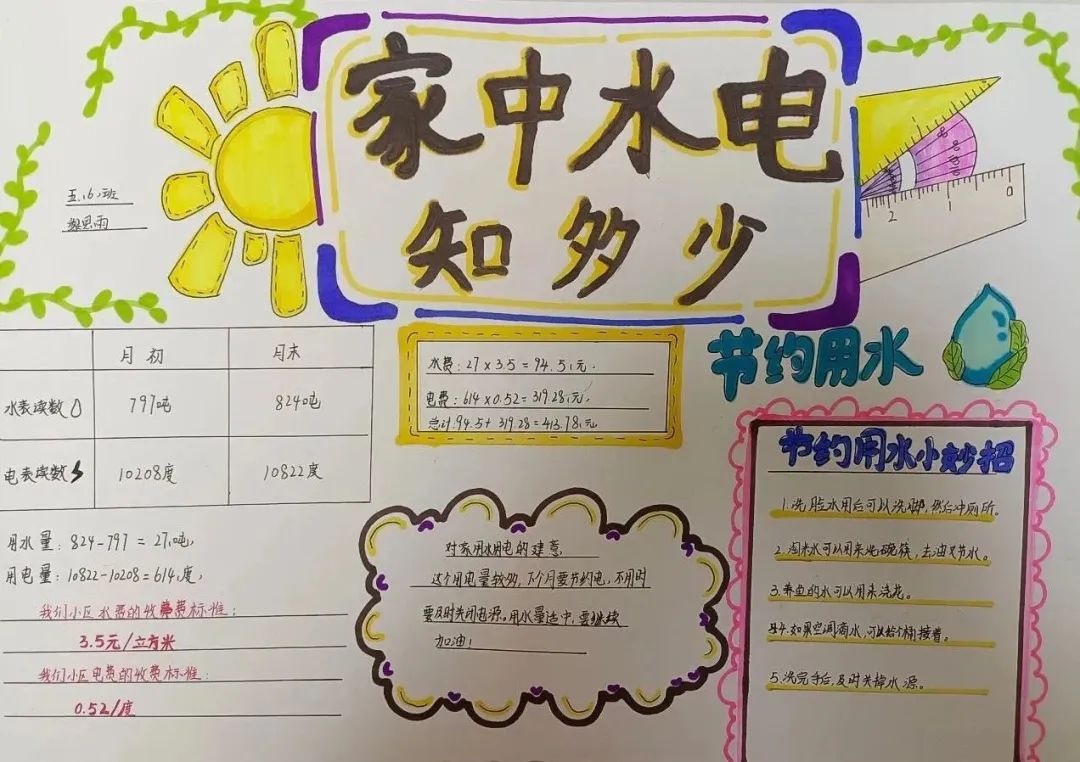 家中水电
知多少
五、(6)、班
思雨
月初
月末
水表读数
797吨
824吨
电表读数
10208度
10822度
用水量：824-797=27(吨)
用电量：10822-10208=614(度)
我们小区水费的收费标准：
3.5元/立方米
我们小区电费的收费标准：
0.52/度
水费：27×3.5=94.5(元)
电费：614×0.52=319.28(元)
总计：94.5+319.28=413.78(元)
对家用水用电的建意
这个用电量较多，下个月要节约电，不用时
要及时关闭电源。用水量适中，要继续
加油！
2
1
0
节约用水
节约用水小妙招
1.洗脸水用后可以洗脚，然后冲厕所。
2.淘米水可以用来洗碗筷，去油又节水。
3.养鱼的水可以用来浇花。
4.如果空调滴水，可以给个桶接着。
5.洗完手后，及时关掉水源。